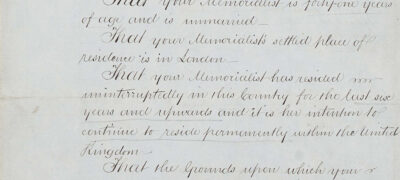 That your Memorialist is forty nine years
of age and is unmarried
That your Memorialists settled place of
residence is in London
That your Memorialist has resided
uninterruptedly in this Country for the last six
years and upwards and it is her intention to
continue to reside permanently within the United
Kingdom
That the Grounds upon which your